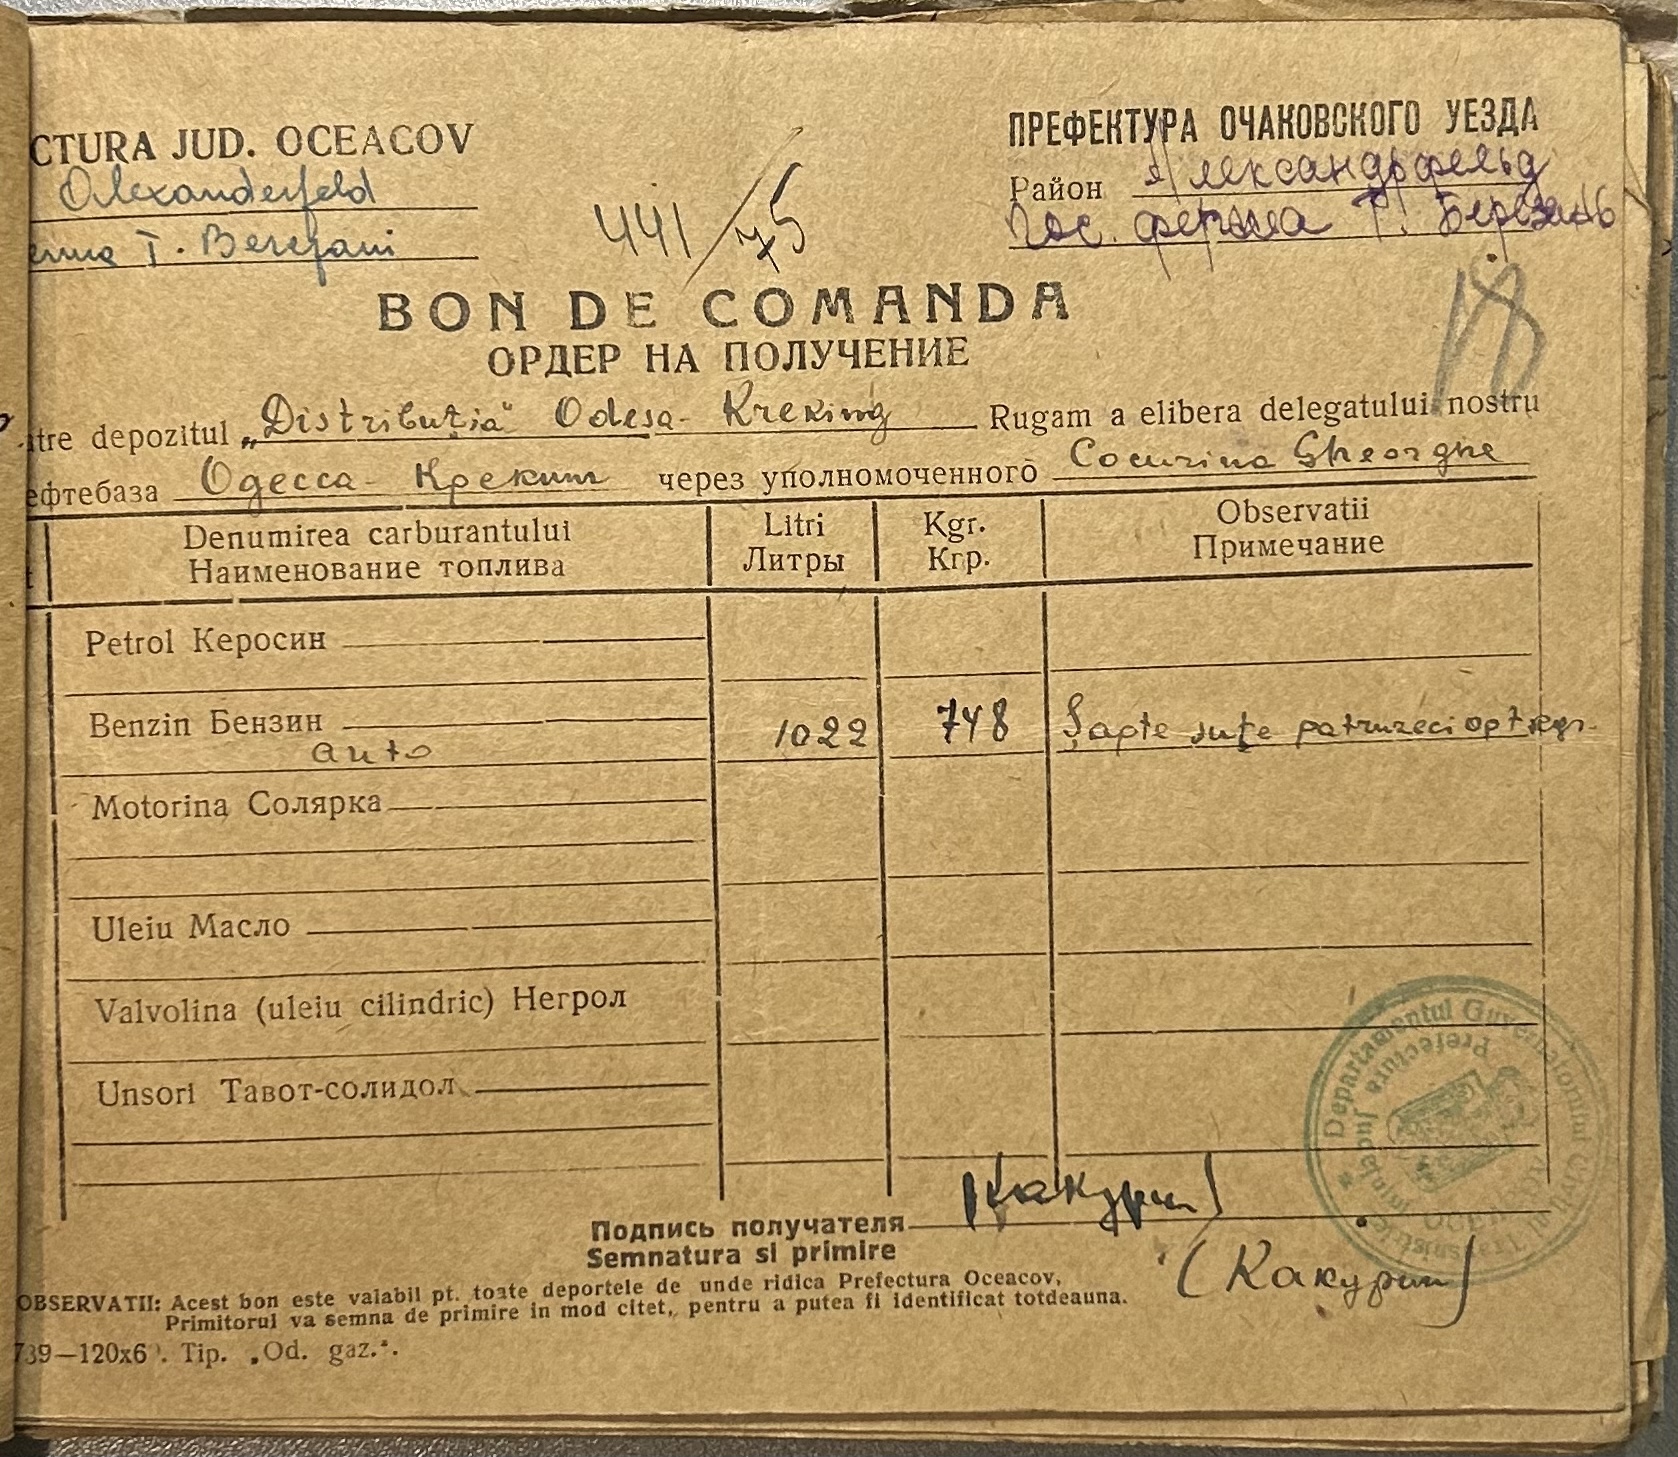 CTURA JUD. OCEACOV
Alexanderfeld
T. Berezani
441/75
ПРЕФЕКТУРА ОЧАКОВСКОГО УЕЗДА
Район Александрфельд
Гос. ферма Т. Березань
18
BON DE COMANDA
ОРДЕР НА ПОЛУЧЕНИЕ
tre depozitul „Distribuția" Odesa-Kreking Rugam a elibera delegatului nostru
ефтебаза Одесса-Крекинг через уполномоченного Cocurina Gheorghe
Denumirea carburantului Litri Kgr. Observatii
Наименование топлива Литры Кгр. Примечание
Petrol Керосин
Benzin Бензин 1022 748 Șapte sute patruzeci opt kgr.
auto
Motorina Солярка
Uleiu Масло
Valvolina (uleiu cilindric) Негрол
Unsori Тавот-солидол
Подпись получателя (Какурин)
Semnatura si primire
(Какурин)
OBSERVATII: Acest bon este valabil pt. toate deportele de unde ridica Prefectura Oceacov,
Primitorul va semna de primire in mod citet, pentru a putea fi identificat totdeauna.
739—120x6 . Tip. „Od. gaz.".
Departamentul Guvernamontul Civil Transnistriei
Prefectura Județului